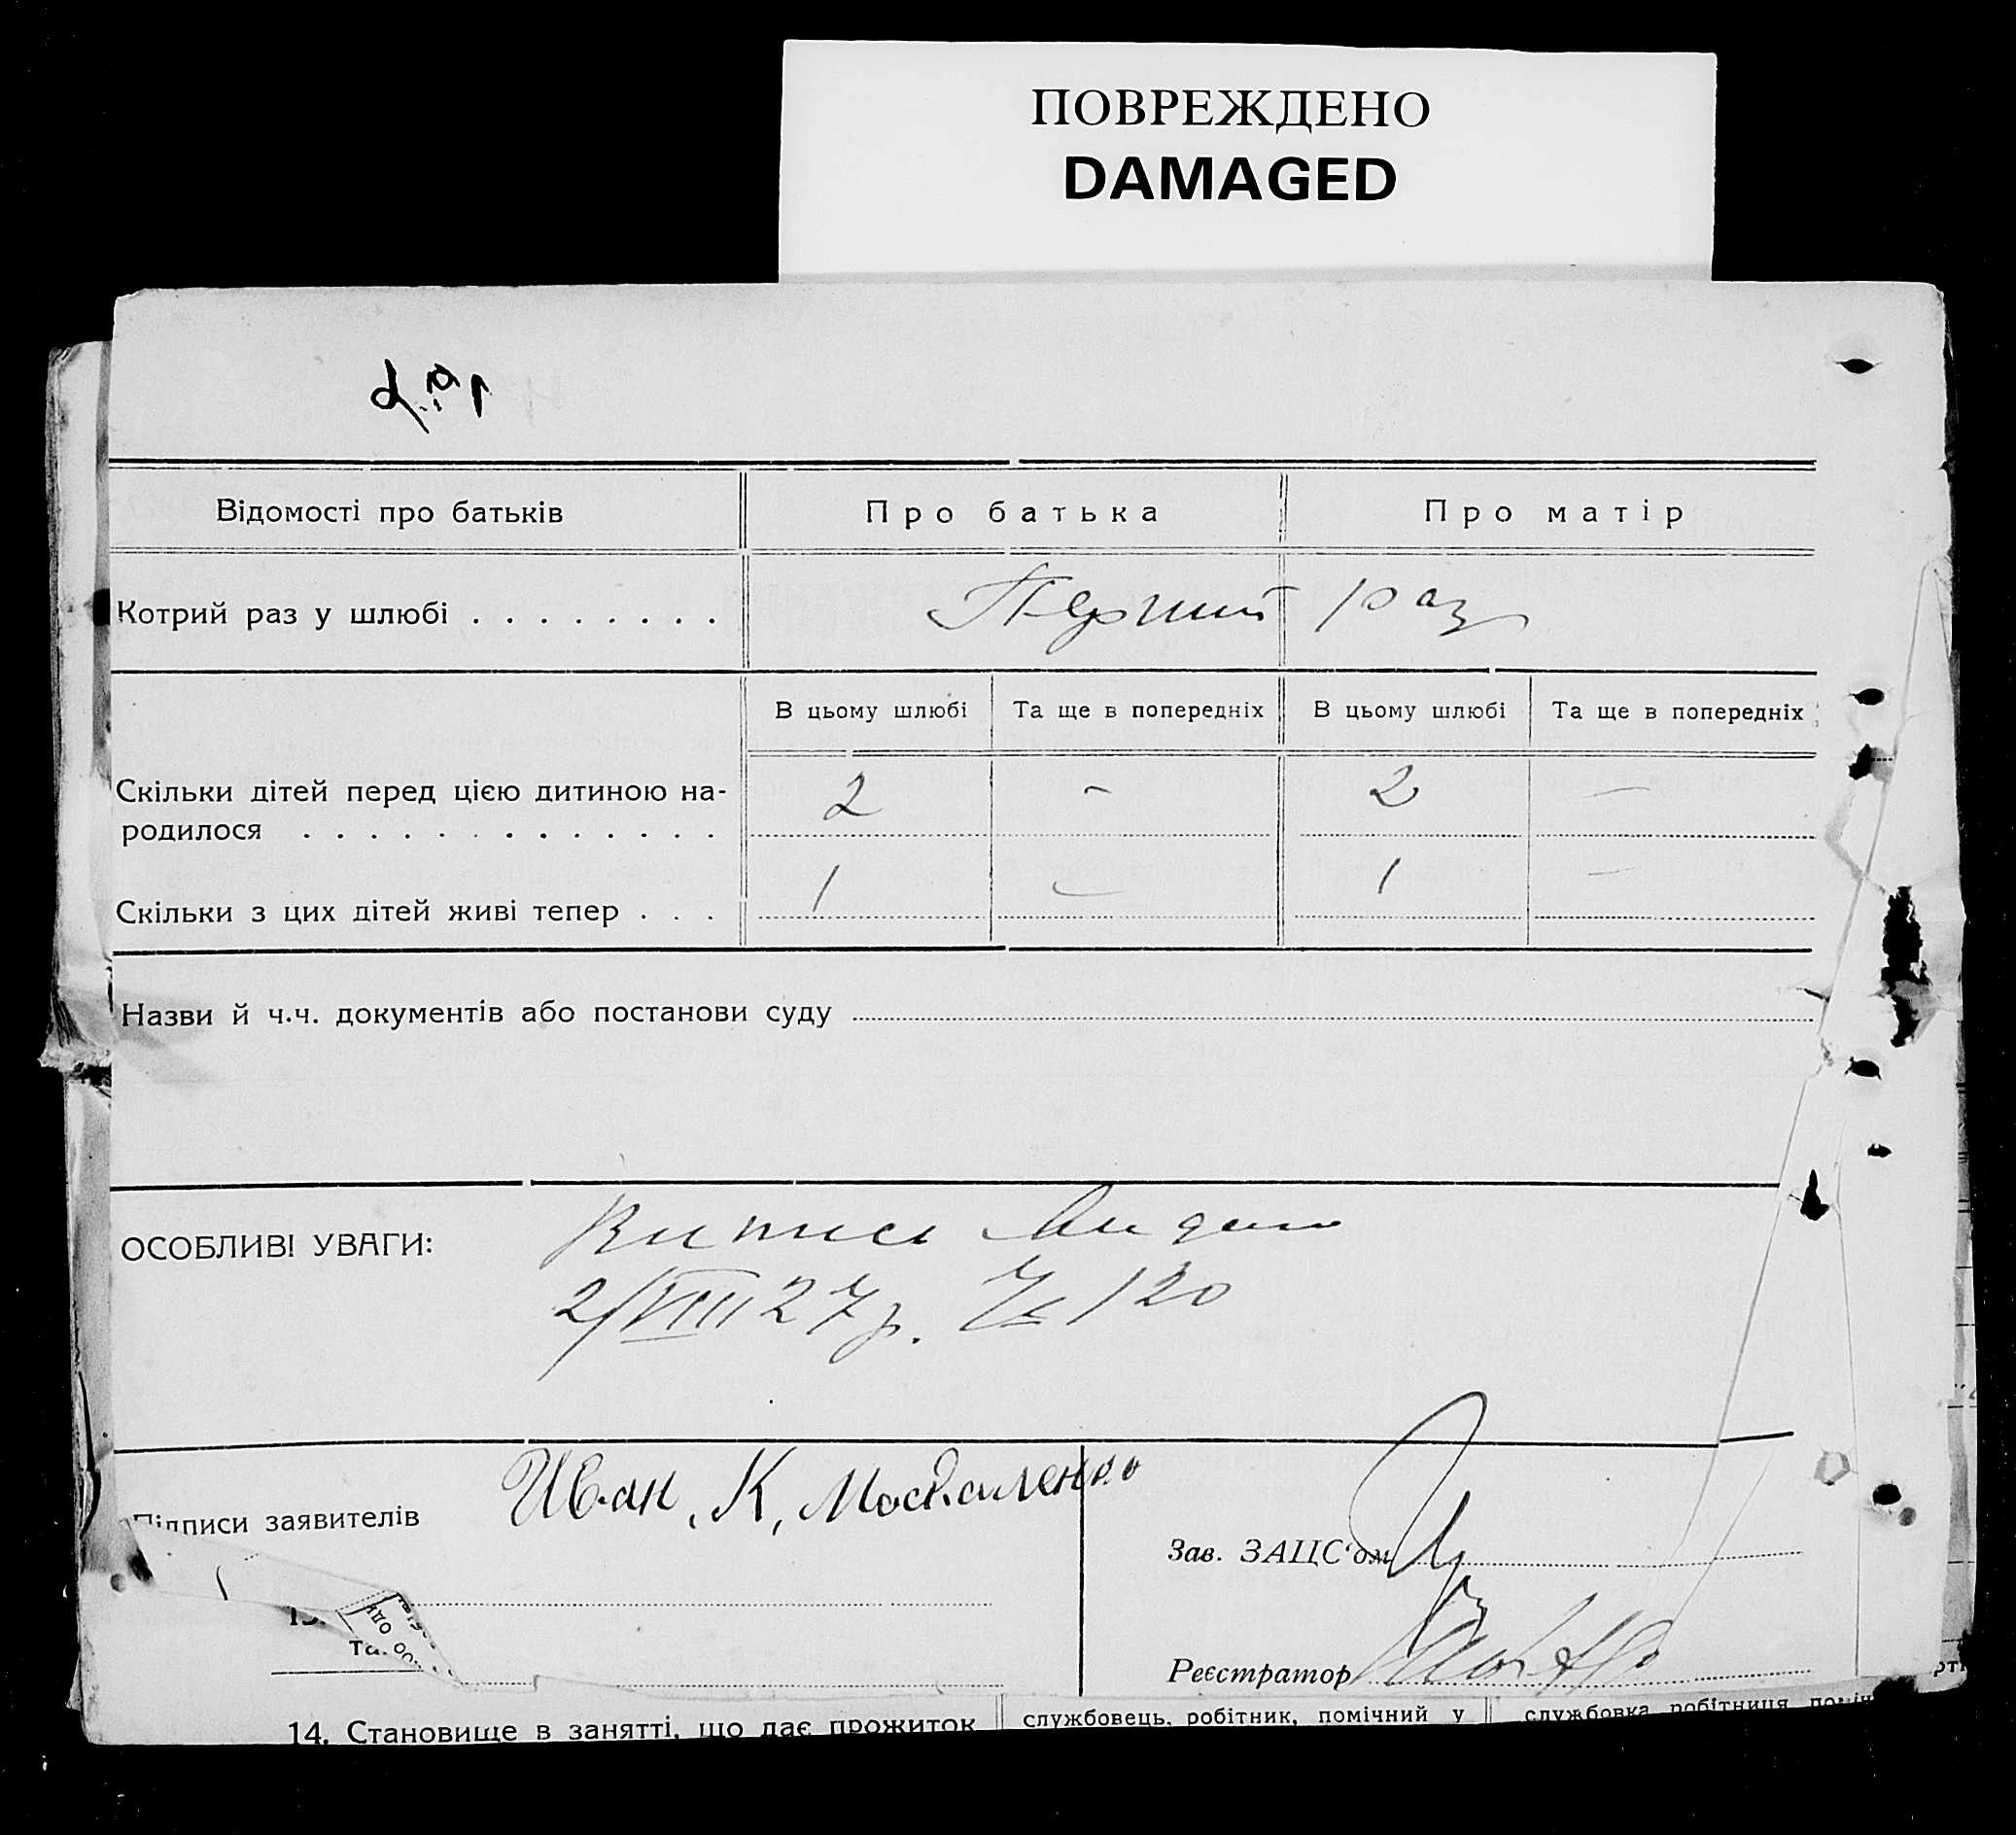 ПОВРЕЖДЕНО
DAMAGED
Відомості про батьків Про батька Про матір
Котрий раз у шлюбі . . . . . . . . Перший раз
В цьому шлюбі Та ще в попередніх В цьому шлюбі Та ще в попередніх
Скільки дітей перед цією дитиною на- 2 – 2 –
родилося . . . . . . . . . . . . .
Скільки з цих дітей живі тепер . . . 1 – 1 –
Назви й ч.ч. документів або постанови суду
ОСОБЛИВІ УВАГИ: Випись видано
2/VIII 27 р. № 120
Підписи заявителів Иван, К, Москаленко
Зав. ЗАЦС'ом
Реєстратор
14. Становище в занятті, що дає прожиток службовець, робітник, помічний у службовка робітниця